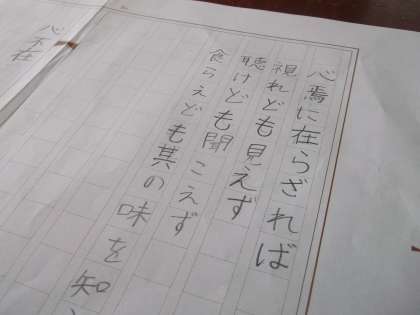 心焉に在らざれば
視れども見えず
聴けども聞こえず
食らえども其の
味を知
心不在